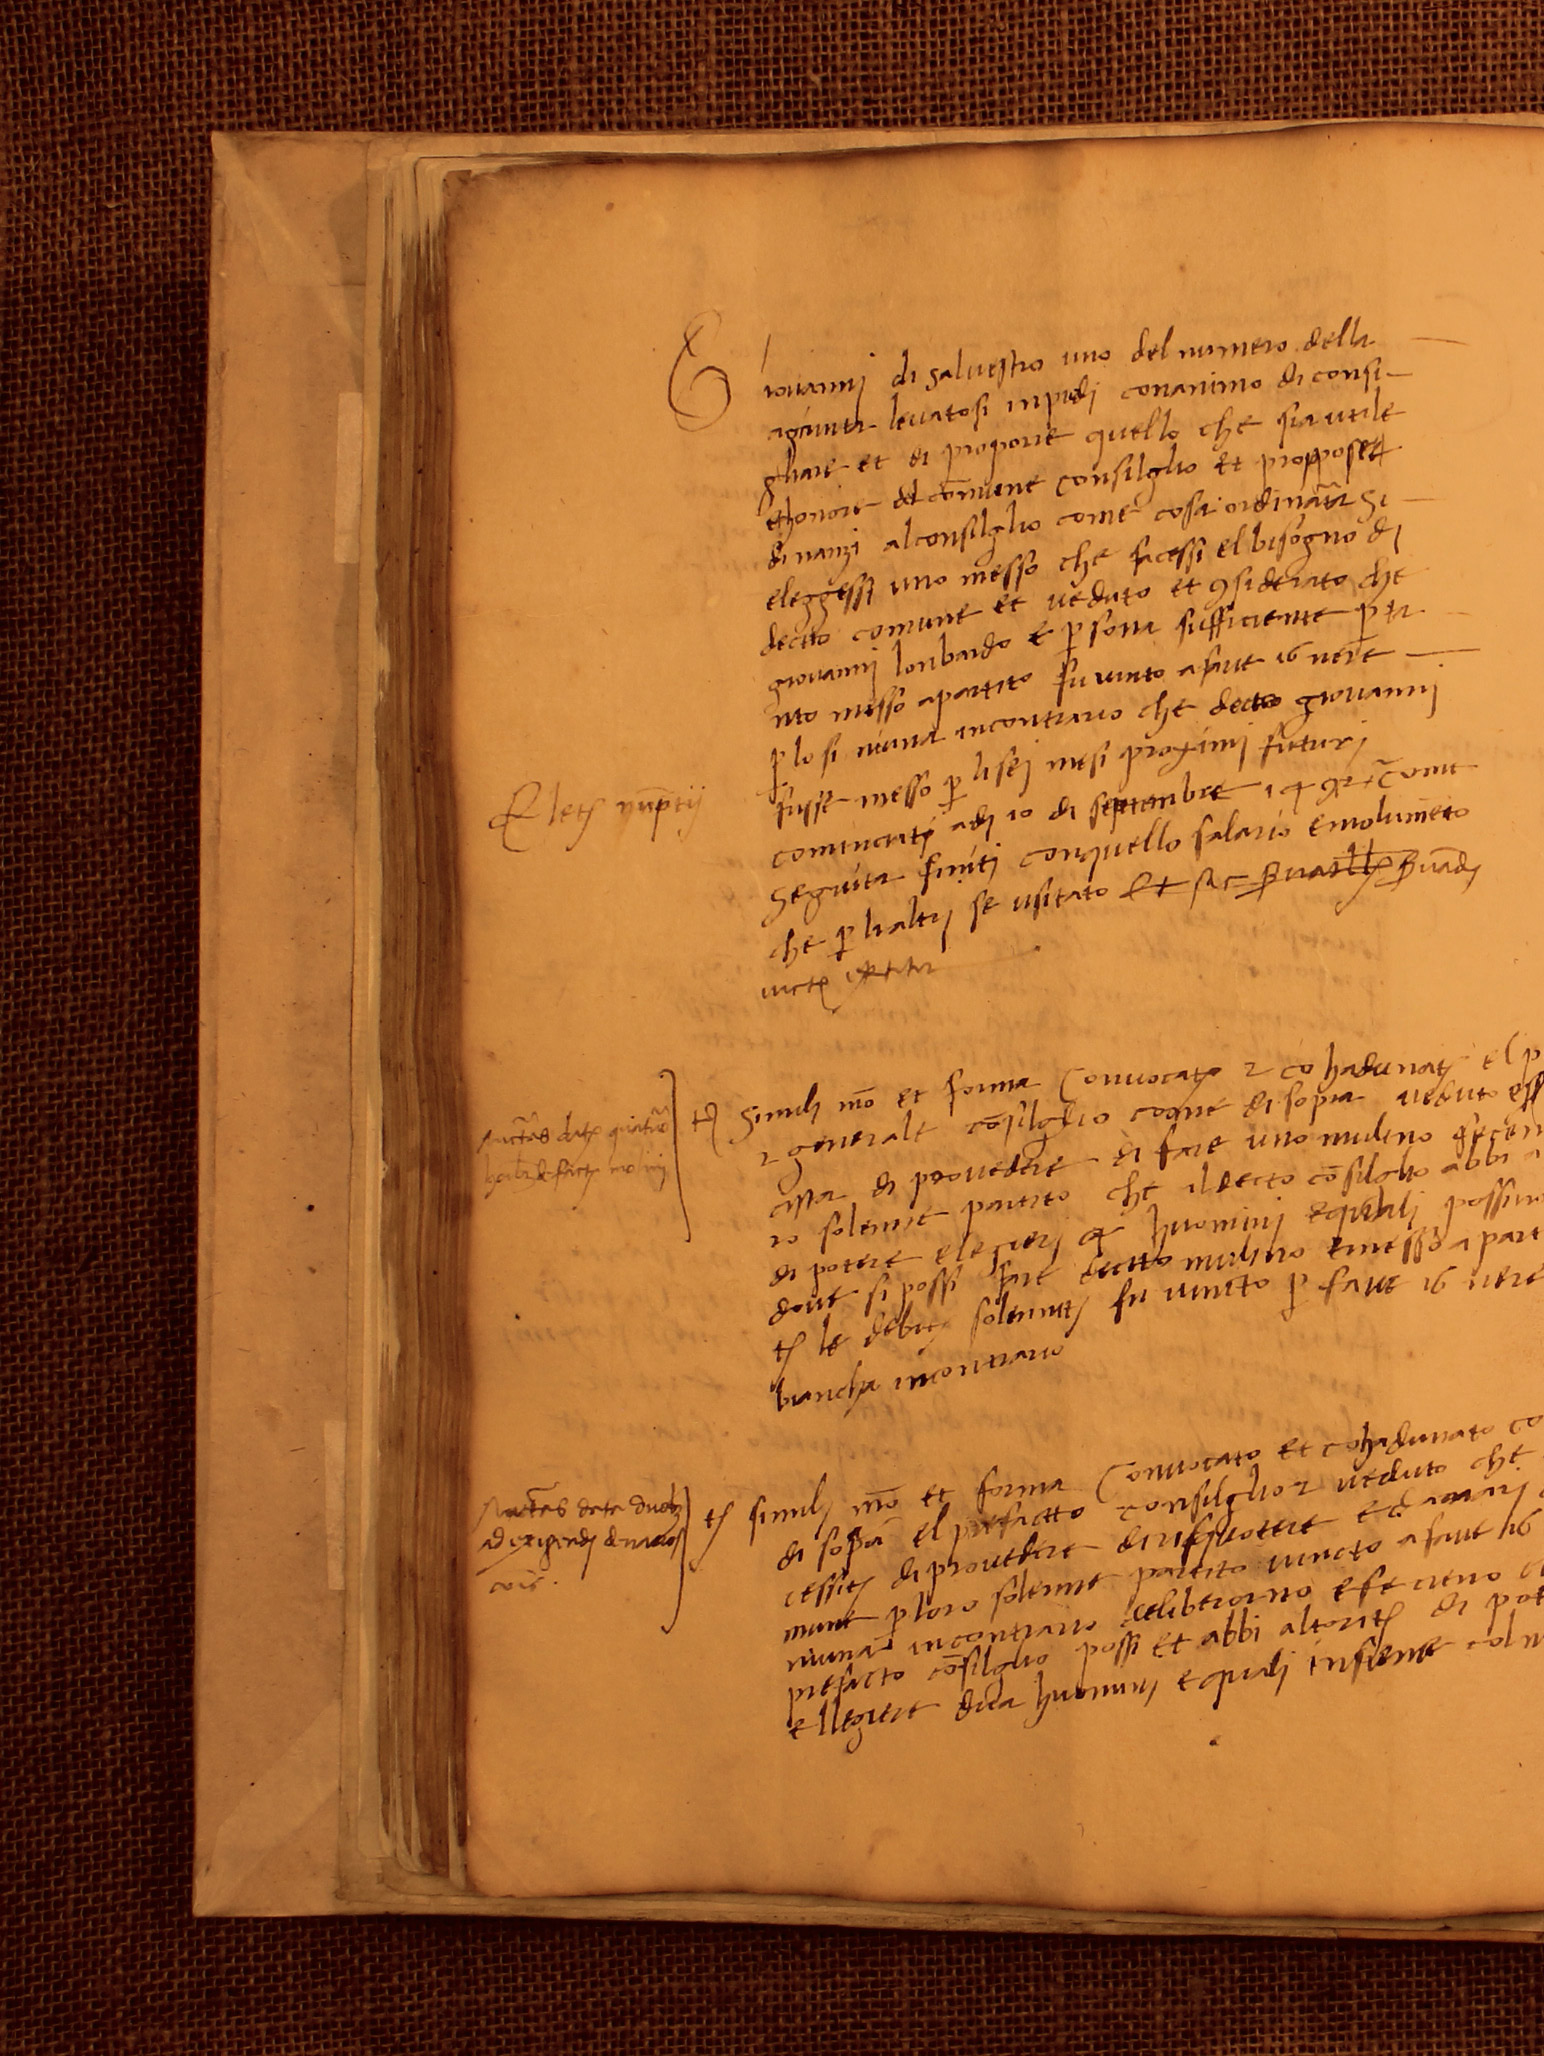 Giovannj di salvestro uno del numero della
agiunta levatosi inpiedj conanimo di consi-
gliare et di proporre quello che sia utile
et honore del comune Consilglio et proppose
dinanzi alconsilglio come cosa ordinaria si
eleggessi uno messo che facessi el bisogno dj
decto comune et veduto et considerato che
giovannj lonbardo e persona sufficiente per ta
nto messo apartito fu vinto afave 16 nere
per lo si niuna incontrario che decto giovannj
fusse messo per li sej mesi proximj futurj
cominciati adj 10 di septembre 149 come
Seguita finitj conquello salario emolumento
che per lialtrj se usitato et sic
Electio nuptij
Simili modo et forma Convocato et cohadunato el p
et generale consilglio come di sopra veduto ess
di provedere di fare uno mulino fecen
ro solenne partito che ildecto consilglio abbi a
di potere elegierj 4 huominj equalj possino
dove si possi fare decto mulino emesso a part
le debite solennita fu vincto per fave 16 nere
biancha incontrario
Auctoritas data duobus
ad exigendum denarios
cois.
Simili modo et forma Convocato et cohadunato co
di sopra el prefacto consilglio et veduto che
cessita di provedere di rischuotere
mune per loro solenne partito vincto a fave 16
niuna incontrario deliberorno efecieno
prefacto consilglio possi et abbi altorita di pot
ellegiere dua huominj equalj insieme col